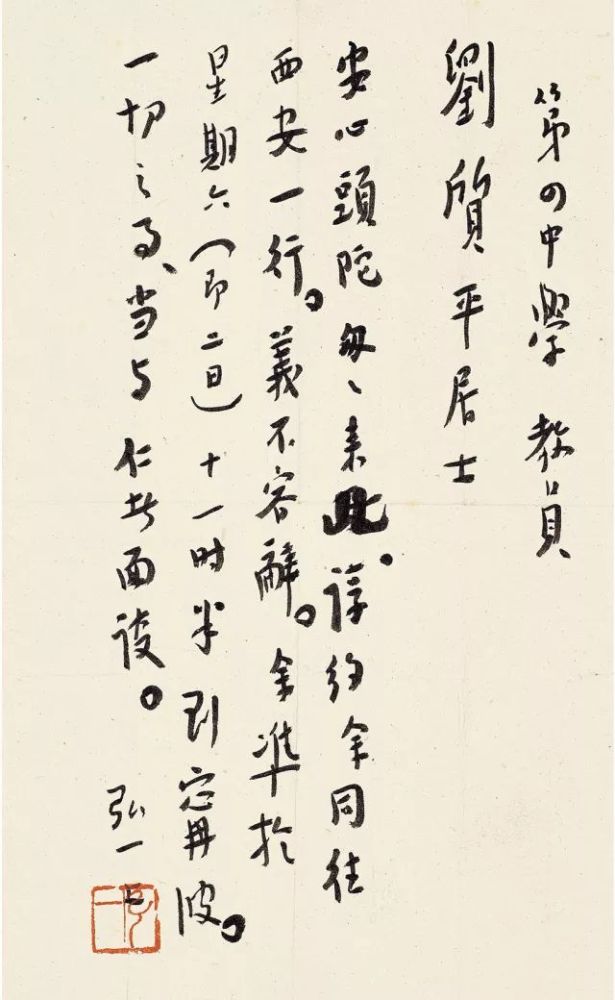 第四中學 教員
劉質平居士
安心頭陀匆々来此。諄約余同往
西安一行。義不容辭。余準於
星期六（即二日）十一时半到甯波。
一切之事、当与仁者面談。
弘一